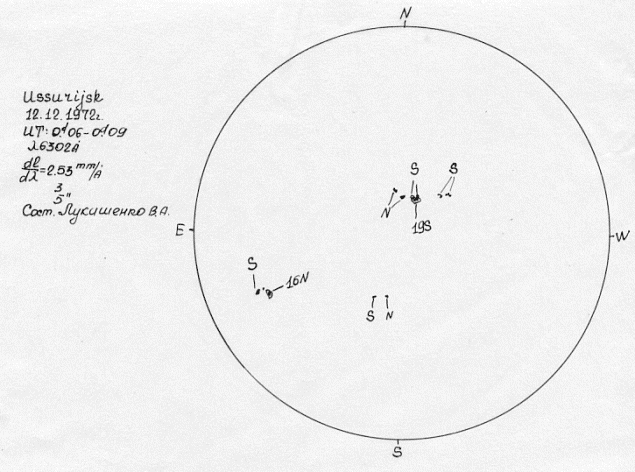 N
Ussurijsk
12.12.1972г.
UT: 0ʰ06-0ʰ09
λ6302Å
dl/dλ=2.53 mm/Å
3
5"
Сост. Лукишенко В.А.
S S
N 19S
E W
S 16N
S N
S